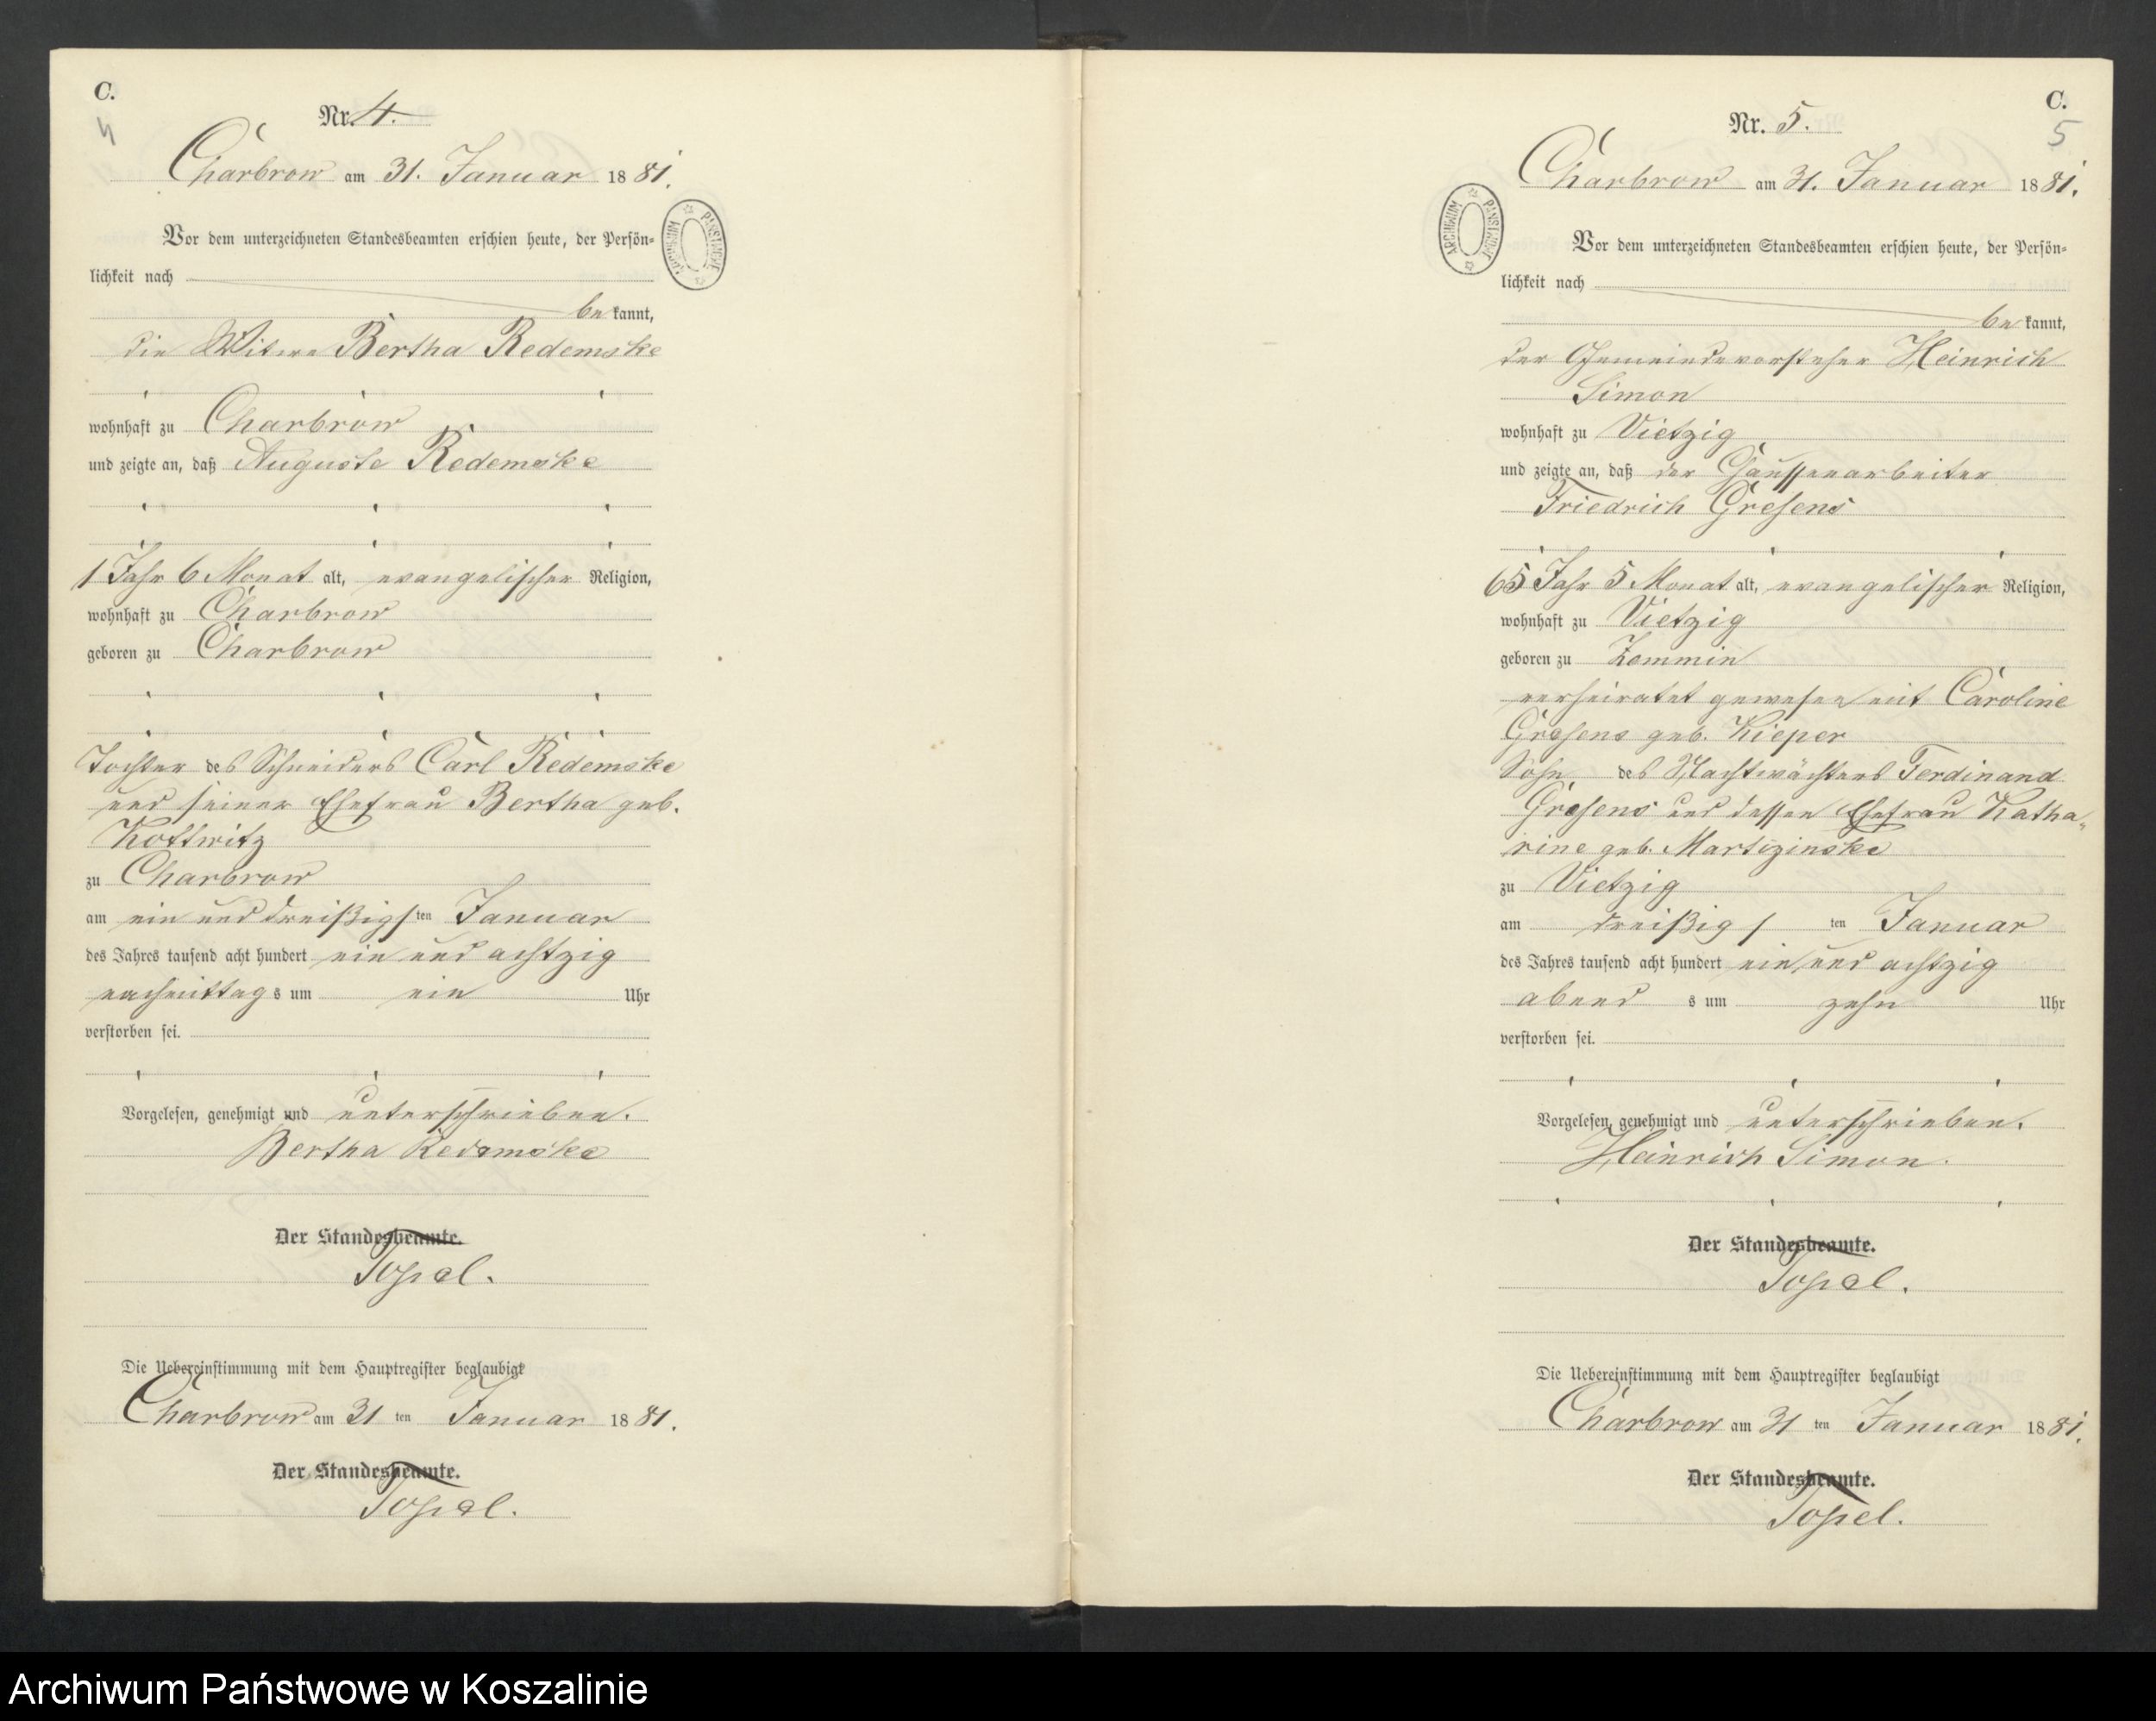 C.
4
Nr. 4.
Charbrow am 31. Januar 1881.
ARCHIWUM PAŃSTWOWE
Vor dem unterzeichneten Standesbeamten erschien heute, der Persön-
lichkeit nach
bekannt,
die Witwe Bertha Redemske
wohnhaft zu Charbrow
und zeigte an, daß Auguste Redemske
1 Jahr 6 Monat alt, evangelischer Religion,
wohnhaft zu Charbrow
geboren zu Charbrow
Tochter des Schneiders Carl Redemske
und seiner Ehefrau Bertha geb.
Kottwitz
zu Charbrow
am ein und dreißigsten Januar
des Jahres tausend acht hundert ein und achtzig
nachmittags um ein Uhr
verstorben sei.
Vorgelesen, genehmigt und unterschrieben.
Bertha Redemske
Der Standesbeamte.
Topel.
Die Uebereinstimmung mit dem Hauptregister beglaubigt
Charbrow am 31ten Januar 1881.
Der Standesbeamte.
Topel.
C.
5
Nr. 5.
Charbrow am 31. Januar 1881.
ARCHIWUM PAŃSTWOWE
Vor dem unterzeichneten Standesbeamten erschien heute, der Persön-
lichkeit nach
bekannt,
der Gemeindevorsteher Heinrich
Simon
wohnhaft zu Vietzig
und zeigte an, daß der Chausseearbeiter
Friedrich Gresens
65 Jahr 5 Monat alt, evangelischer Religion,
wohnhaft zu Vietzig
geboren zu Zemmin
verheiratet gewesen mit Caroline
Gresens geb. Kieper
Sohn des Nachtwächters Ferdinand
Gresens und dessen Ehefrau Katha-
rine geb. Martizinske
zu Vietzig
am dreißigsten Januar
des Jahres tausend acht hundert ein und achtzig
abends um zehn Uhr
verstorben sei.
Vorgelesen, genehmigt und unterschrieben.
Heinrich Simon.
Der Standesbeamte.
Topel.
Die Uebereinstimmung mit dem Hauptregister beglaubigt
Charbrow am 31ten Januar 1881.
Der Standesbeamte.
Topel.
Archiwum Państwowe w Koszalinie